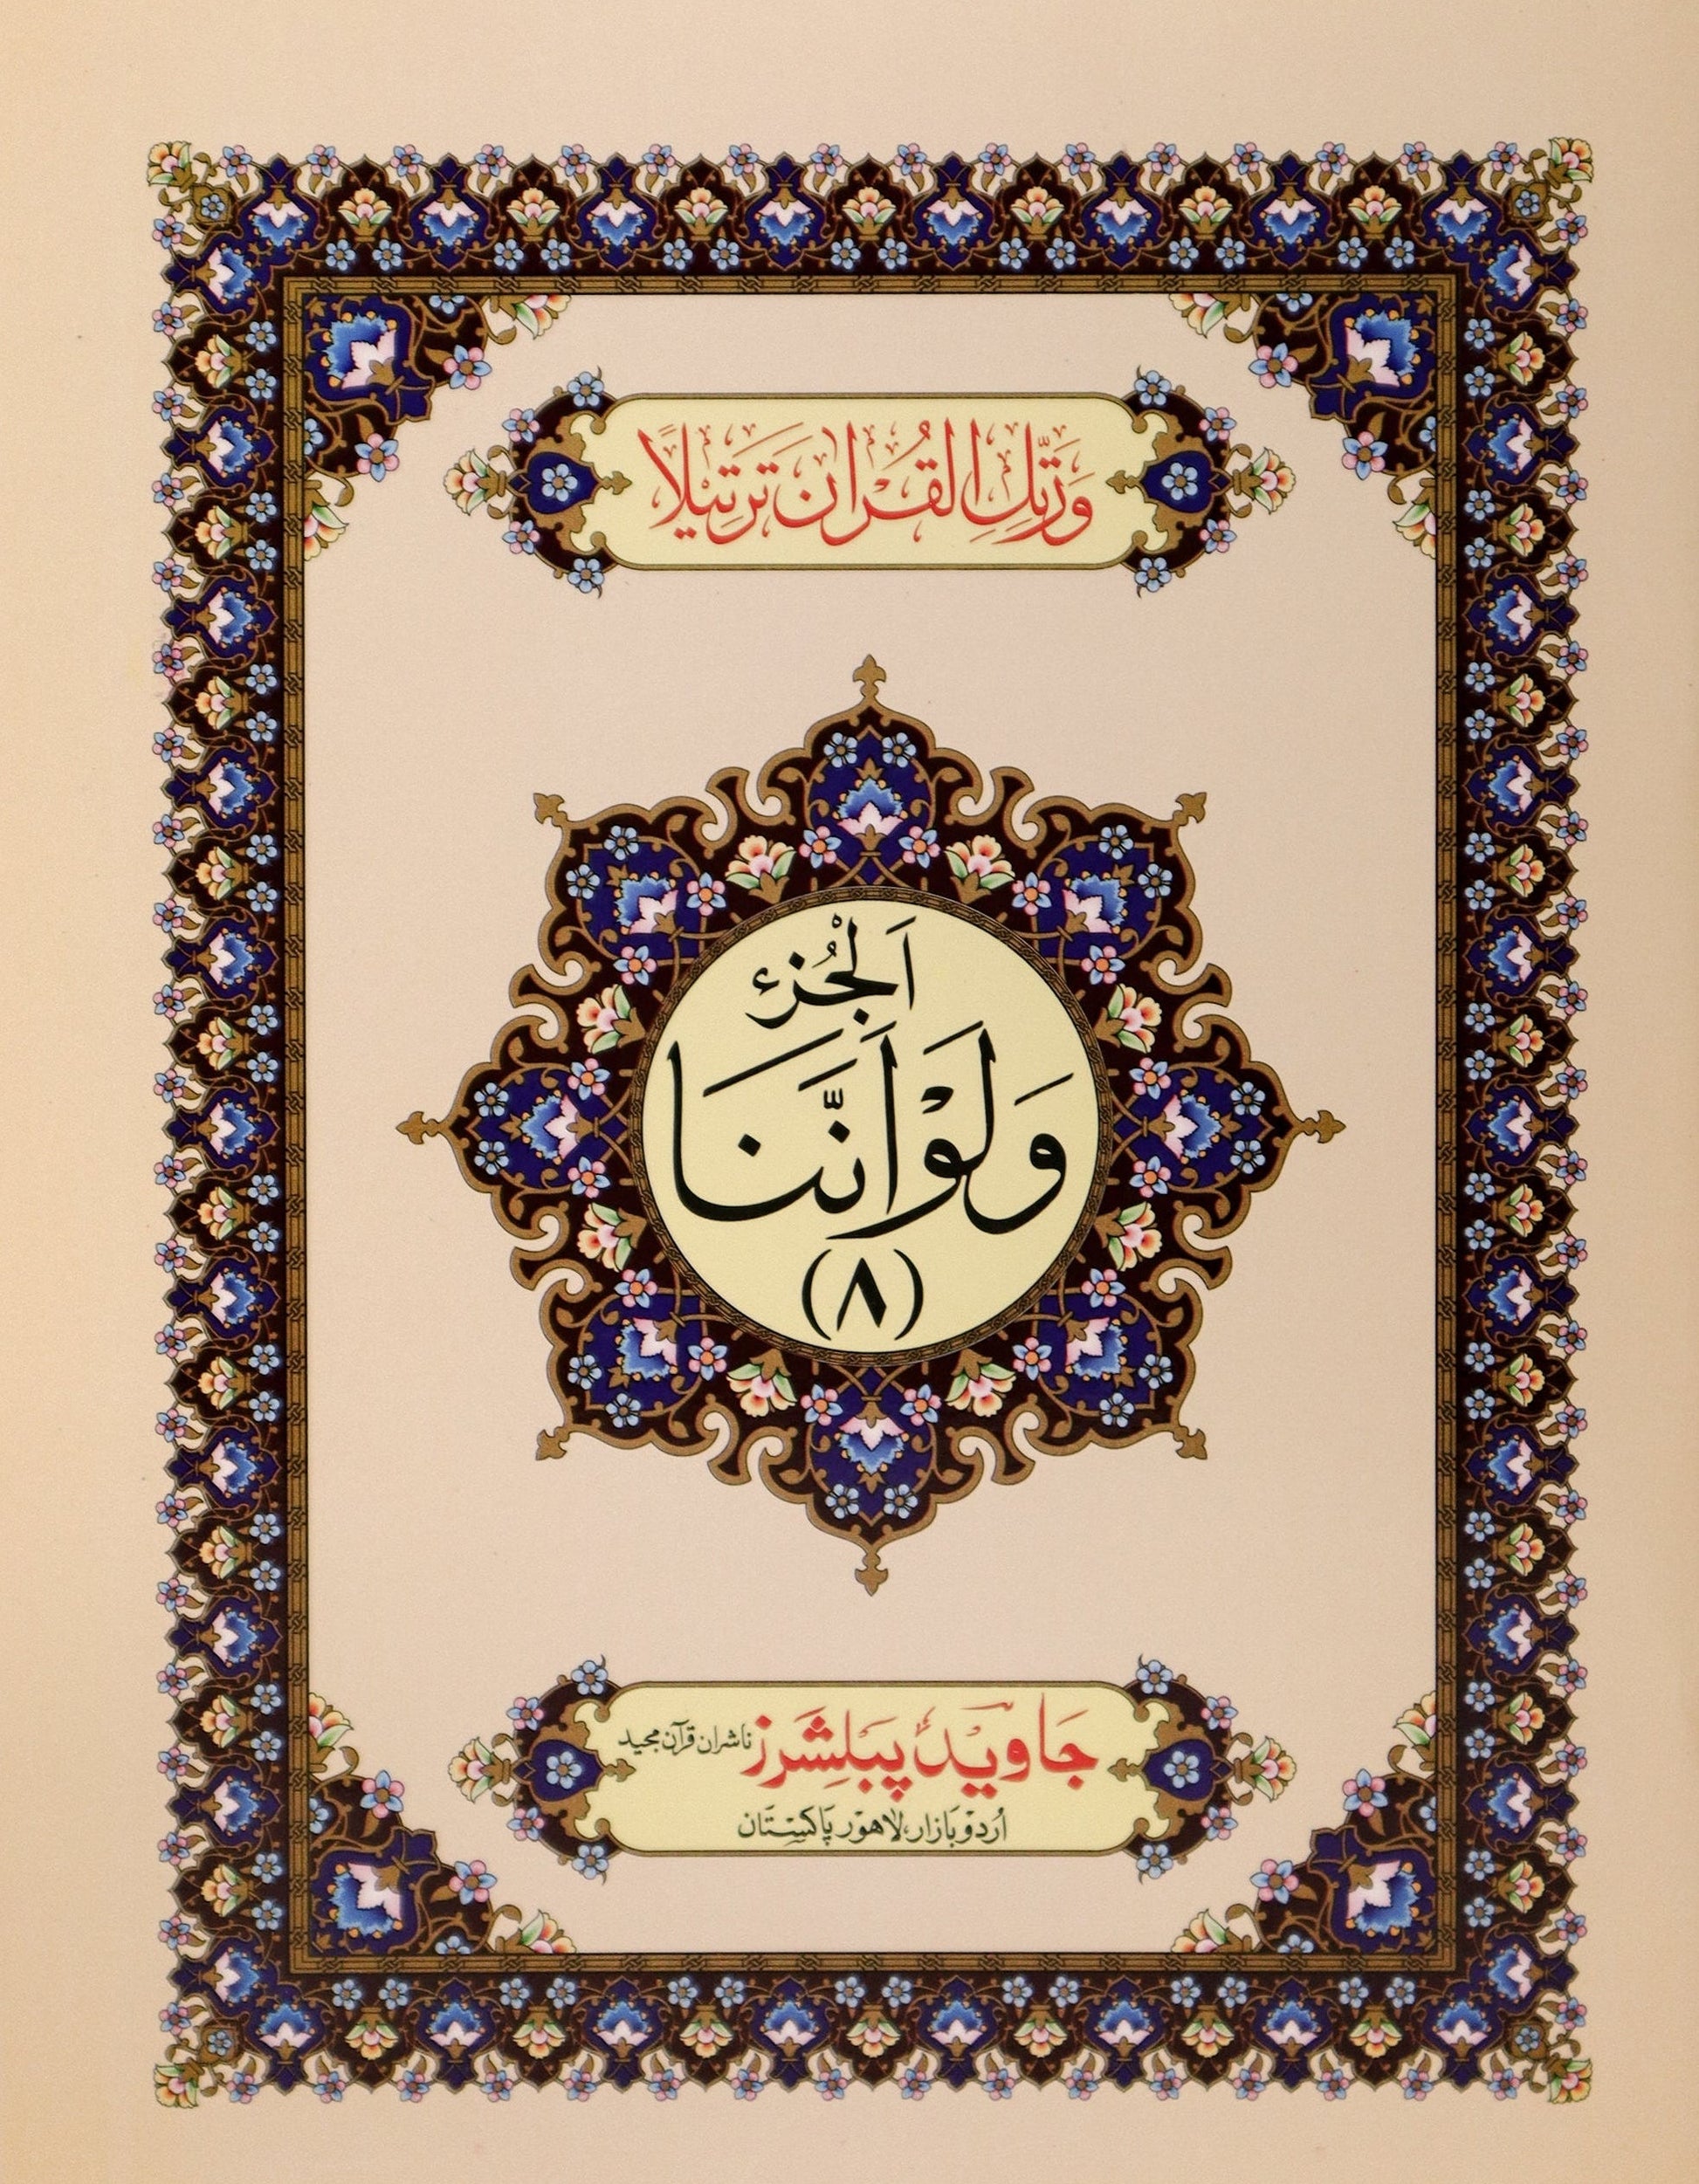 وَرَتِّلِ الْقُرْاٰنَ تَرْتِيْلًا
اَلْجُزْءُ
وَلَوْ اَنَّنَا
(٨)
جَاوِيْد پَبلِشَرز ناشران قرآن مجيد
اُردو بَازار، لاهور پَاکستَان